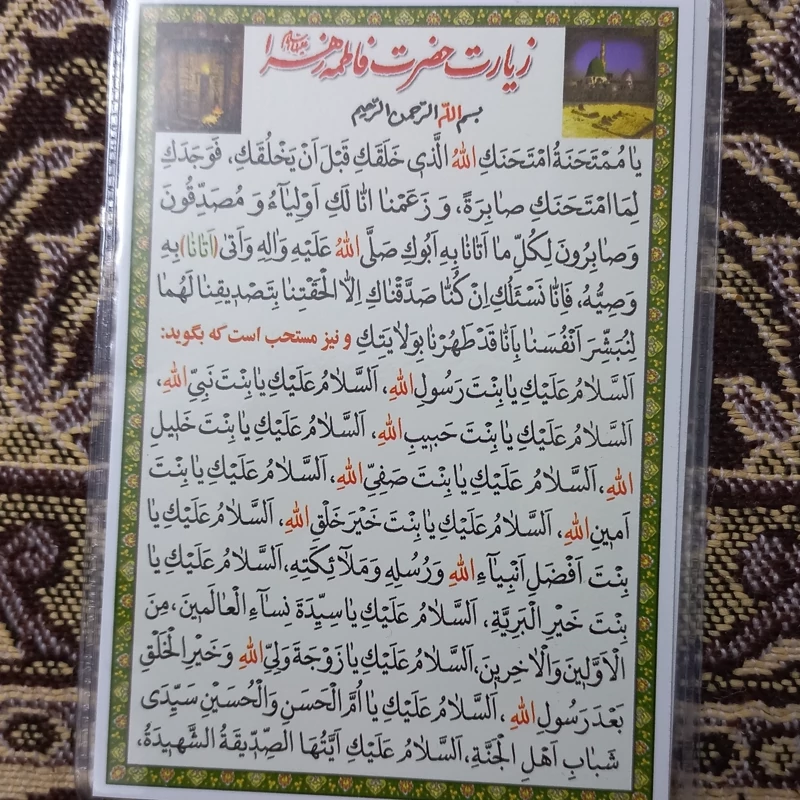 زیارت حضرت فاطمه زهرا
بسم الله الرحمن الرحیم
يٰا مُمْتَحَنَةُ امْتَحَنَكِ اللهُ الَّذى خَلَقَكِ قَبْلَ اَنْ يَخْلُقَكِ، فَوَجَدَكِ
لِمَا امْتَحَنَكِ صٰابِرَةً، وَ زَعَمْنٰا اَنّٰا لَكِ اَوْلِيٰآءُ وَ مُصَدِّقُونَ
وَ صٰابِرُونَ لِكُلِّ مٰا اَتٰانٰا بِهِ اَبُوكِ صَلَّى اللهُ عَلَيْهِ وَ اٰلِهِ وَ اَتىٰ (اَتٰانٰا) بِهِ
وَصِيُّهُ، فَاِنّٰا نَسْئَلُكِ اِنْ كُنّٰا صَدَّقْنٰاكِ اِلّٰا اَلْحَقْتِنٰا بِتَصْديقِنٰا لَهُمٰا
لِنُبَشِّرَ اَنْفُسَنٰا بِاَنّٰا قَدْ طَهُرْنٰا بِوِلٰايَتِكِ و نیز مستحب است که بگوید:
اَلسَّلٰامُ عَلَيْكِ يٰا بِنْتَ رَسُولِ اللهِ، اَلسَّلٰامُ عَلَيْكِ يٰا بِنْتَ نَبِيِّ اللهِ،
اَلسَّلٰامُ عَلَيْكِ يٰا بِنْتَ حَبيبِ اللهِ، اَلسَّلٰامُ عَلَيْكِ يٰا بِنْتَ خَليلِ
اللهِ، اَلسَّلٰامُ عَلَيْكِ يٰا بِنْتَ صَفِيِّ اللهِ، اَلسَّلٰامُ عَلَيْكِ يٰا بِنْتَ
اَمينِ اللهِ، اَلسَّلٰامُ عَلَيْكِ يٰا بِنْتَ خَيْرِ خَلْقِ اللهِ، اَلسَّلٰامُ عَلَيْكِ يٰا
بِنْتَ اَفْضَلِ اَنْبِيٰآءِ اللهِ وَ رُسُلِهِ وَ مَلٰآئِكَتِهِ، اَلسَّلٰامُ عَلَيْكِ يٰا
بِنْتَ خَيْرِ الْبَرِيَّةِ، اَلسَّلٰامُ عَلَيْكِ يٰا سَيِّدَةَ نِسٰآءِ الْعٰالَمينَ، مِنَ
الْاَوَّلينَ وَ الْاٰخِرينَ، اَلسَّلٰامُ عَلَيْكِ يٰا زَوْجَةَ وَلِيِّ اللهِ وَ خَيْرِ الْخَلْقِ
بَعْدَ رَسُولِ اللهِ، اَلسَّلٰامُ عَلَيْكِ يٰا اُمَّ الْحَسَنِ وَ الْحُسَيْنِ سَيِّدَى
شَبٰابِ اَهْلِ الْجَنَّةِ، اَلسَّلٰامُ عَلَيْكِ اَيَّتُهَا الصِّدّيقَةُ الشَّهيدَةُ،